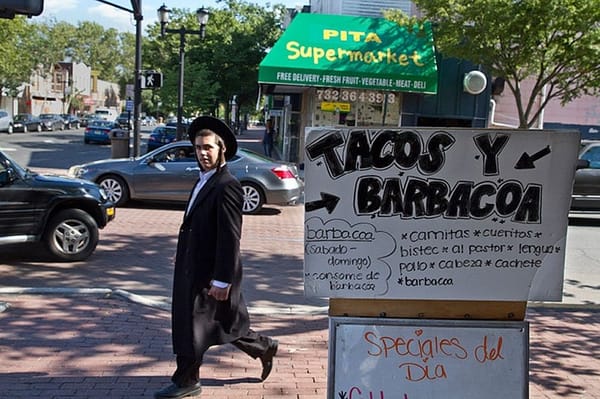 PITA
Supermarket
FREE DELIVERY - FRESH FRUIT - VEGETABLE - MEAT - DELI
TACOS Y
BARBACOA
barbacoa
(sabado-
domingo)
*consome de
barbacoa
*carnitas *cueritos*
bistec * al pastor * lengua*
pollo * cabeza * cachete
*barbacoa
Speciales del
Dia